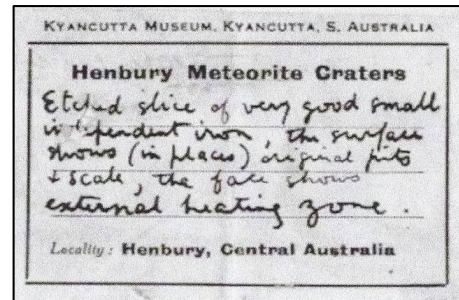 KYANCUTTA MUSEUM, KYANCUTTA, S. AUSTRALIA
Henbury Meteorite Craters
Etched slice of very good small
independent iron, the surface
shows (in places) original pits
+ scale, the face shows
external heating zone.
Locality: Henbury, Central Australia